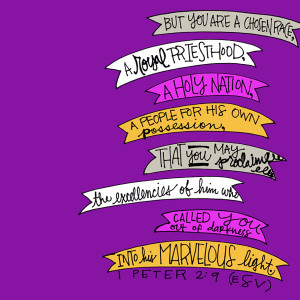 BUT YOU ARE A CHOSEN RACE,
A royal PRIESTHOOD,
A HOLY NATION,
A PEOPLE FOR HIS OWN
possession,
THAT you MAY proclaim
the excellencies of him who
CALLED you
out of darkness
INTO his MARVELOUS light.
1 PETER 2:9 (ESV)